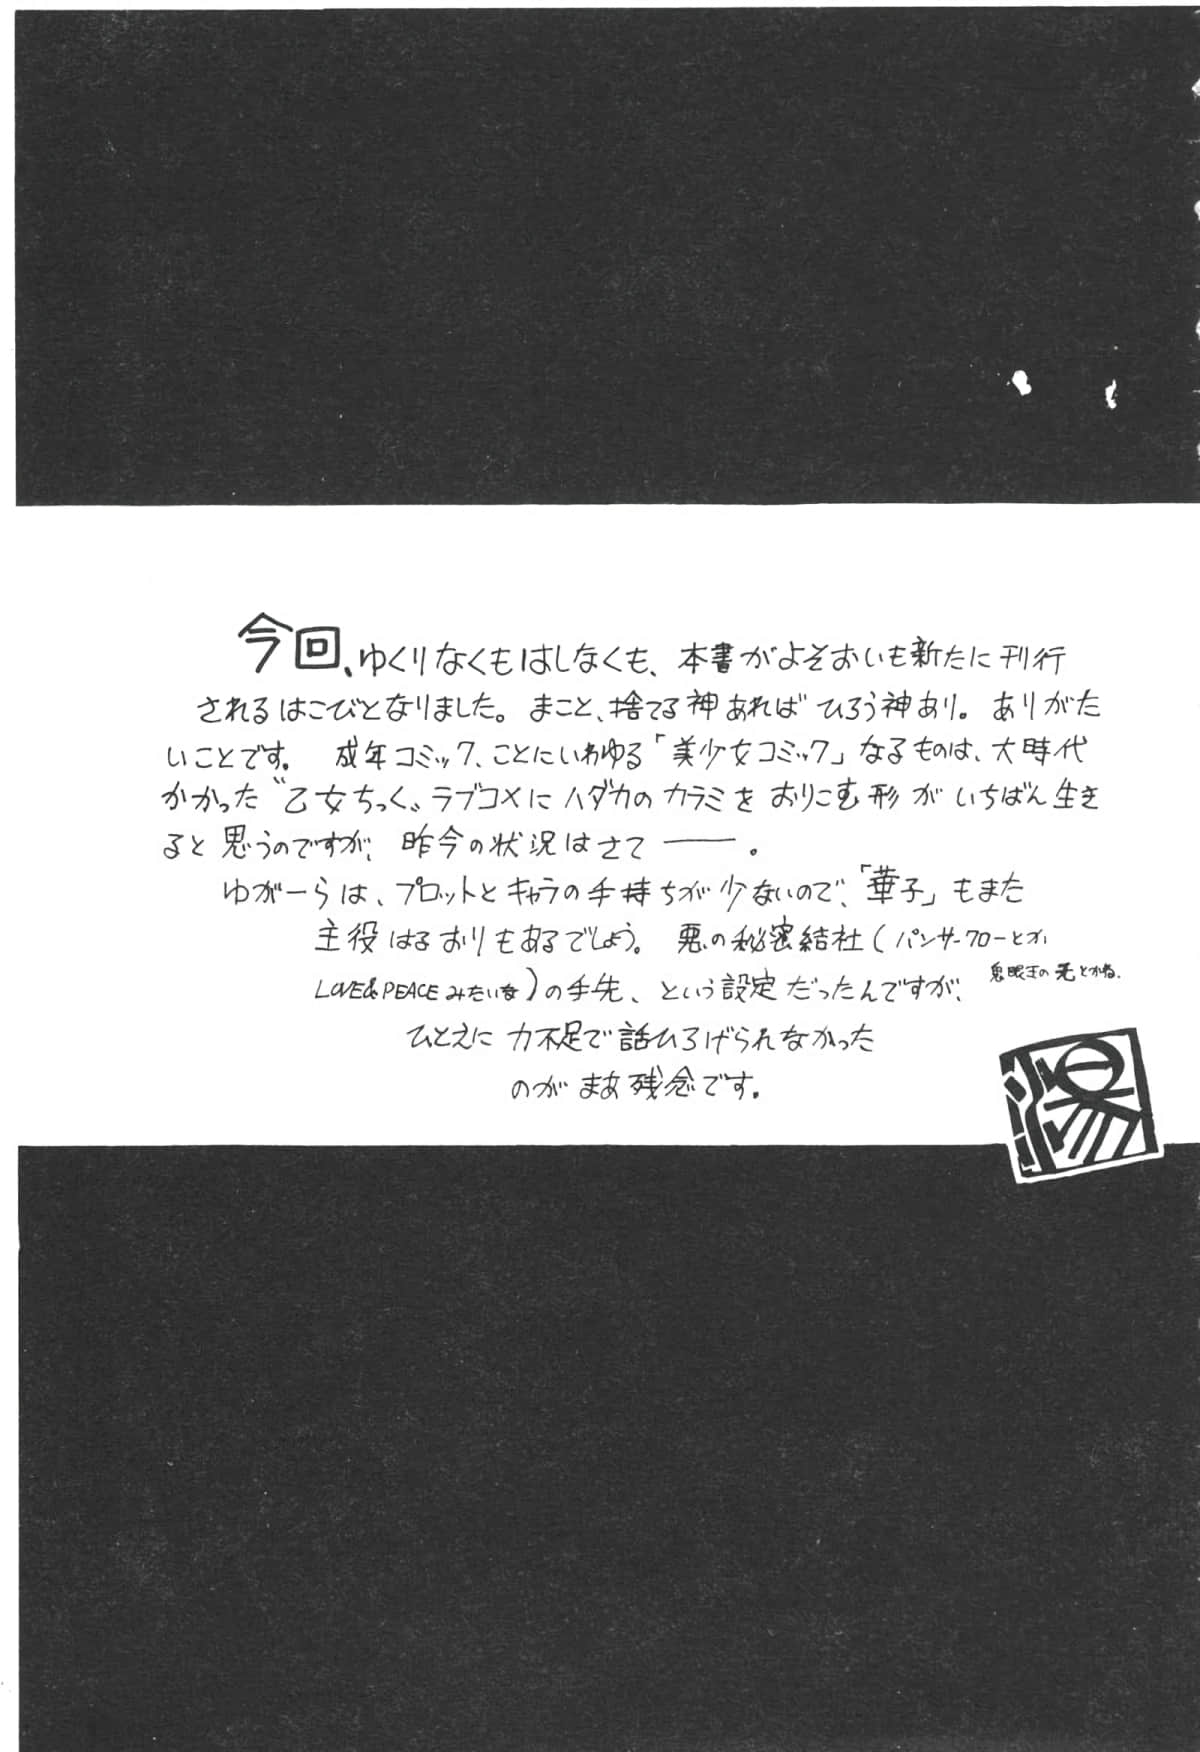 今回、ゆくりなくもはしなくも、本書がよそおいも新たに刊行
されるはこびとなりました。まこと、捨てる神あればひろう神あり。ありがた
いことです。 成年コミック、ことにいわゆる「美少女コミック」なるものは、大時代
かかった〝乙女ちっく〟ラブコメにハダカのカラミをおりこむ形がいちばん生き
ると思うのですが、昨今の状況はさて――。
ゆがーらは、プロットとキャラの手持ちが少ないので、「華子」もまた
主役はるおりもあるでしょう。悪の秘密結社(パンサークローとか
LOVE&PEACEみたいな)の手先、という設定だったんですが、
鬼眼王の とかね。
ひとえに力不足で話ひろげられなかった
のがまあ残念です。